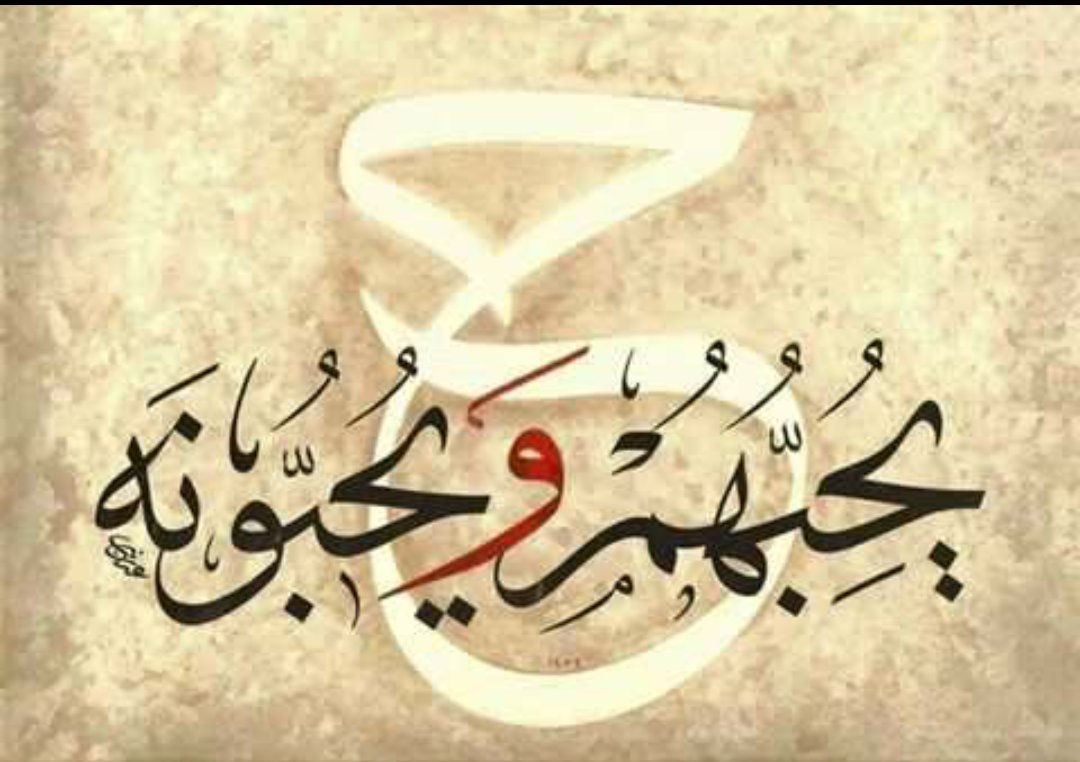 يُحِبُّهُمْ وَيُحِبُّونَه